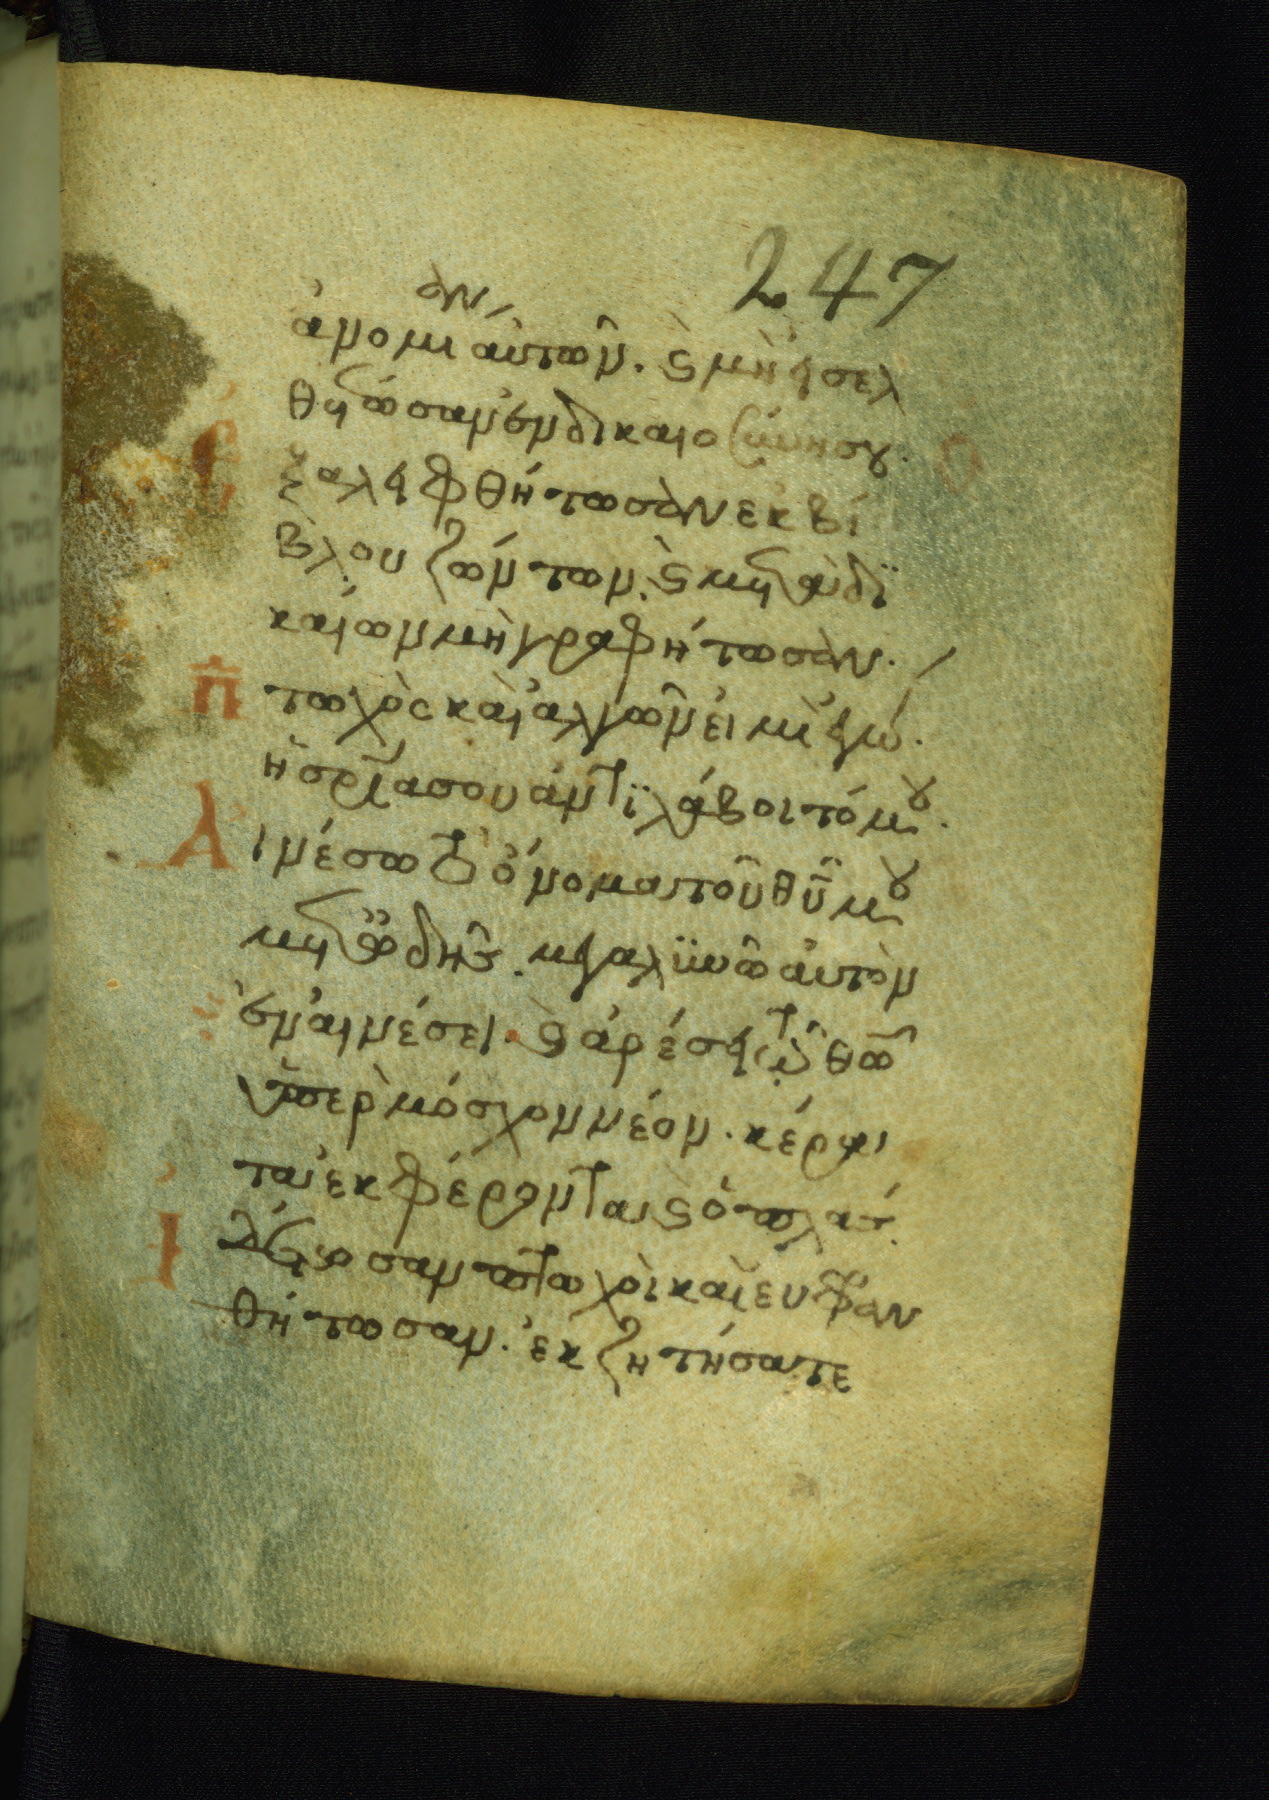 247
ἀνομίαν αὐτῶν. ϛ μὴ εἰσελ
θέτωσαν ἐν δικαιοσύνη σου.
Ἐξαλειφθήτωσαν ἐκ βί
βλου ζώντων. ϛ μετὰ δι
καίων μὴ γραφήτωσαν.
Πτωχὸς καὶ ἀλγῶν εἰμὶ ἐγώ.
ἡ σρία σου ἀντιλάβοιτό μου.
Αἰνέσω τὸ ὄνομα τοῦ θυ μου
μετ ὠδης. μεγαλυνῶ αὐτὸν
ἐν αἰνέσει. ϛ ἀρέσει τῷ θω
ὑπὲρ μόσχον νέον. κέρα
τα ἐκφέροντα ϛ ὁπλάς.
Ἰδέτωσαν πτωχοὶ καὶ εὐφραν
θήτωσαν. ἐκζητήσατε